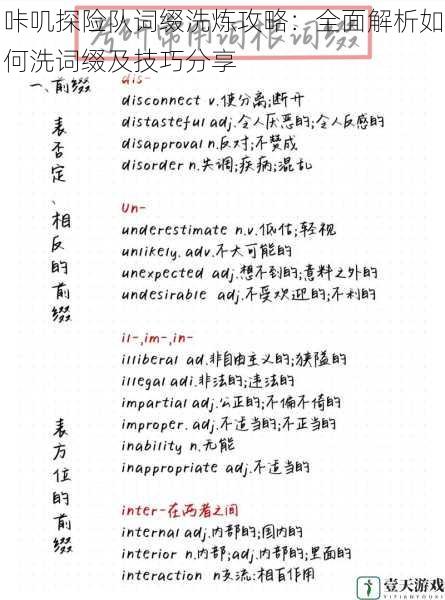 咔叽探险队词缀洗炼攻略：全面解析如
何洗词缀及技巧分享
考研常用词根词缀
一、前缀
表否定、相反的前缀
dis-
disconnect v.使分离;断开
distasteful adj.令人厌恶的;令人反感的
disapproval n.反对;不赞成
disorder n.失调;疾病;混乱
un-
underestimate n.v.低估;轻视
unlikely. adv.不大可能的
unexpected adj.想不到的;意料之外的
undesirable adj.不受欢迎的;不利的
il-,im-,in-
illiberal ad.非自由主义的;狭隘的
illegal adi.非法的;违法的
impartial adj.公正的;不偏不倚的
improper. adj.不适当的;不正当的
inability n.无能
inappropriate adj.不适当的
表方位的前缀
inter-在两者之间
internal adj.内部的;国内的
interior n.内部;adj.内部的;里面的
interaction n交流:相互作用
壹天游戏
YITIANYOUXI